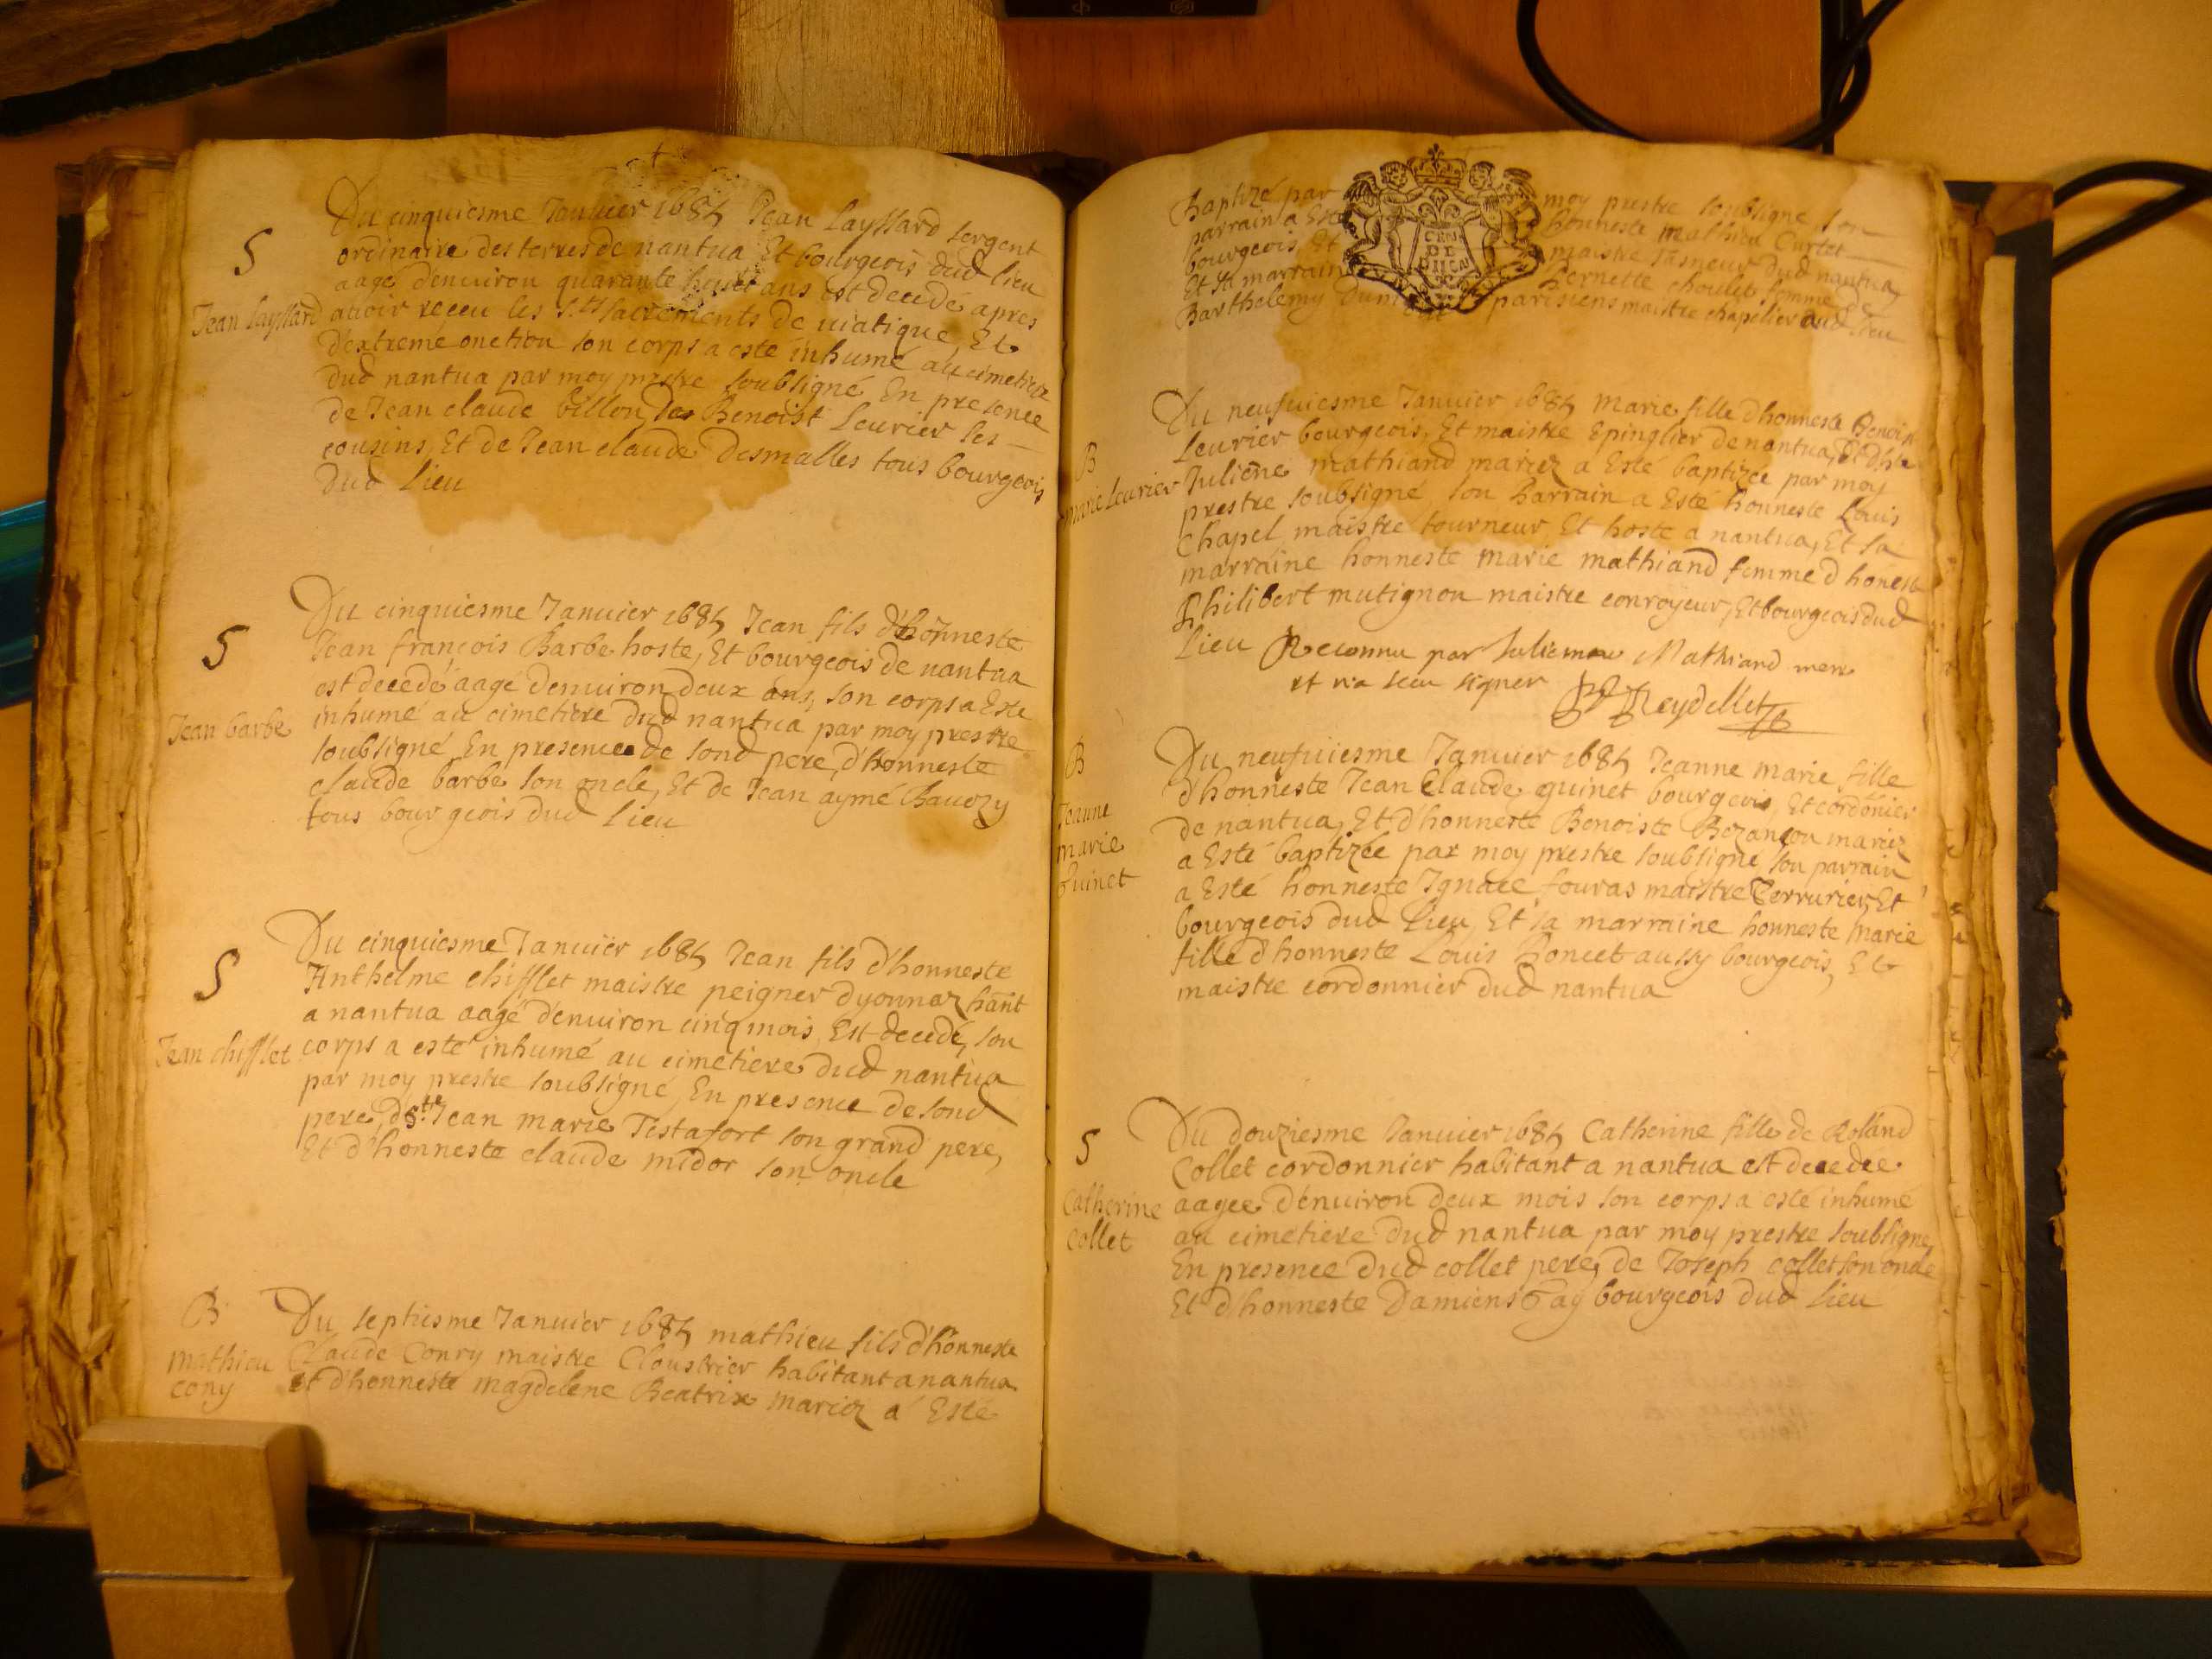 S
Jean Layssard
Du cinquiesme Januier 1685 Jean Layssard sergent
ordinaire des terres de nantua Et bourgeois dud lieu
aagé d'enuiron quarante huit ans est decedé apres
auoir receu les S.ts sacrements de uiatique, Et
d'extreme onction son corps a esté inhumé au cimetiere
dud nantua par moy prestre soubsigné En presence
de Jean claude billon, Benoist Leurier ses
cousins, Et de Jean claude Desmalles tous bourgeois
dud lieu
S
Jean barbe
Du cinquiesme Januier 1685 Jean fils d'honneste
Jean françois Barbe hoste, Et bourgeois de nantua
est decedé aagé denuiron deux ans, son corps a Esté
inhumé au cimetiere dud nantua par moy prestre
soubsigné En presence de sond pere, d'honneste
claude barbe son oncle, Et de Jean aymé Bauozy
tous bourgeois dud lieu
S
Jean chifflet
Du cinquiesme Januier 1685 Jean fils d'honneste
Anthelme chifflet maistre peigner dyonnaz hānt
a nantua aagé d'enuiron cinq mois, Est decedé, son
corps a esté inhumé au cimetiere dud nantua
par moy prestre soubsigné, En presence de sond
pere, d Jean marie Testafort son grand pere,
Et d'honneste claude midor son oncle
B
mathieu
cony
Du septiesme Januier 1685 mathieu fils d'honneste
Claude Conry maistre Cloustrier habitant a nantua
et d'honneste magdelene Beatrix mariez a Esté
Baptizé par moy prestre soubsigné son
parrain a Esté honneste mathieu Curtet
bourgeois, Et maistre tasneur dud nantua,
Et sa marraine Pernette choulet femme de
Barthelemy parisiens maistre chapelier dud lieu
CEN
DE
DIION
B
marie Leurier
Du neufuiesme Januier 1685 Marie fille d'honneste Benoist
Leurier bourgeois, Et maistre Epinglier de nantua, Et d'hte
Juliēne mathiand mariez a Esté baptizée par moy
prestre soubsigné, son Parrain a Esté honneste Louis
Chapel maistre tourneur Et hoste a nantua, Et sa
marraine honneste marie mathiand femme d'honeste
Philibert mutignon maistre conroyeur, Et bourgeois dud
lieu Reconnu par Julienne Mathiand mere
et n'a sceu signer Reydellet
B
Jeanne
marie
Guinet
Du neufuiesme Januier 1685 Jeanne marie fille
d'honneste Jean Claude guinet bourgeois, Et cordōnier
de nantua, Et d'honneste Benoiste Bezançon mariez
a Esté baptizée par moy prestre soubsigné son parrain
a Esté honneste Ignace fouras maistre Serrurier, Et
bourgeois dud lieu, Et sa marraine honneste marie
fille d'honneste Louis Poncet aussy bourgeois, Et
maistre cordonnier dud nantua
S
Catherine
Collet
Du douziesme Januier 1685 Catherine fille de Rolland
Collet cordonnier habitant a nantua est decedée
aagée d'enuiron deux mois son corps a esté inhumé
au cimetiere dud nantua par moy prestre soubsigné
En presence dud collet pere, de Joseph collet son oncle
Et d'honneste Damiens Gay bourgeois dud lieu